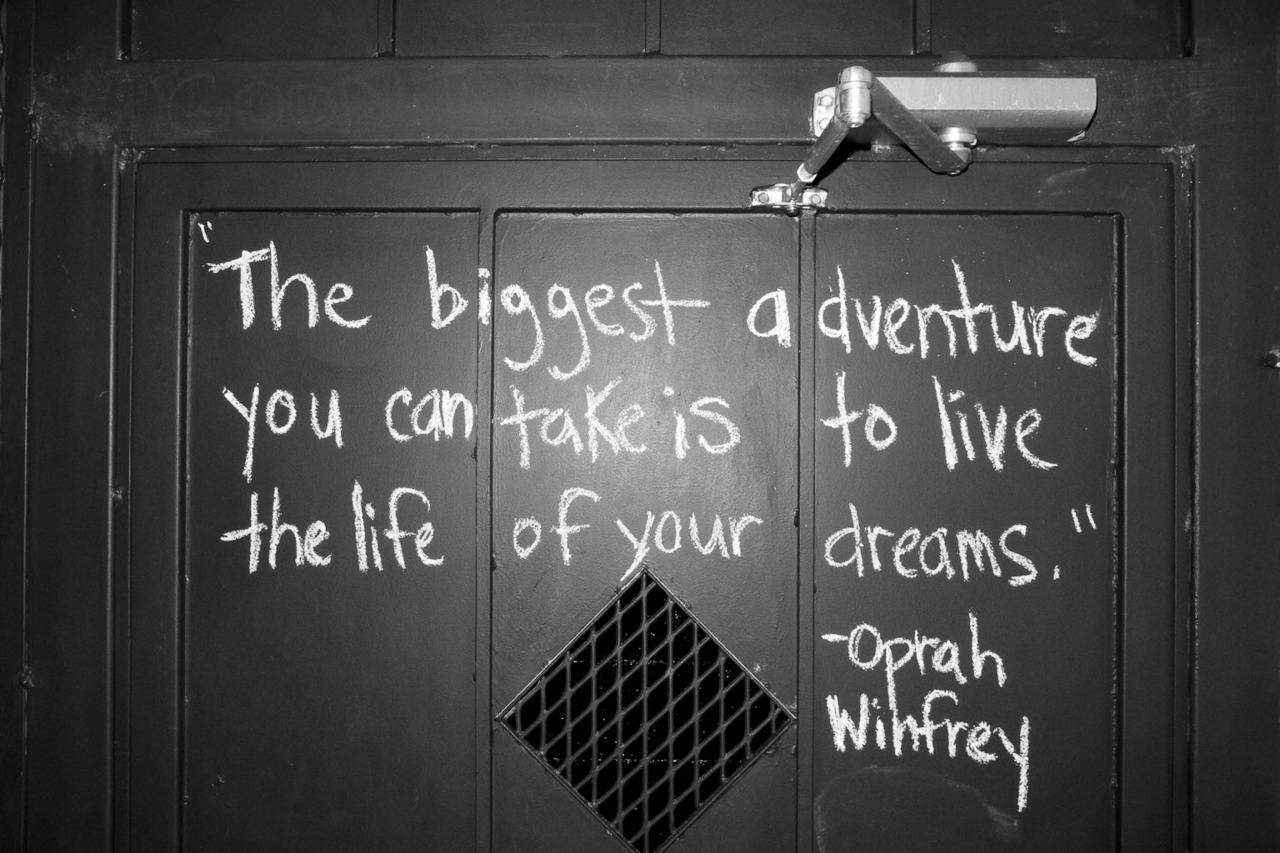 "The biggest adventure
you can take is to live
the life of your dreams."
-Oprah
Winfrey